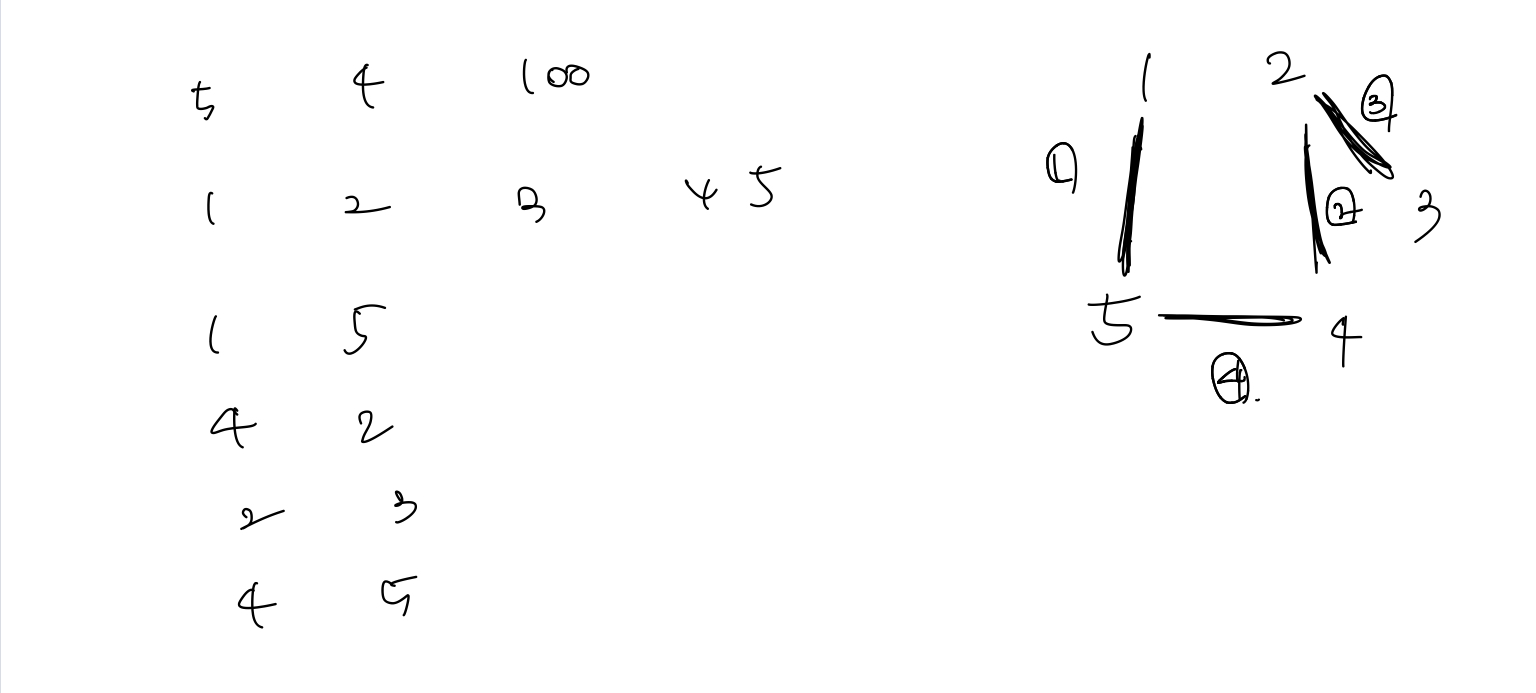 5 4 100
1 2 3 4 5
1 5
4 2
2 3
4 5
1 2
③
① ② 3
5 4
④.